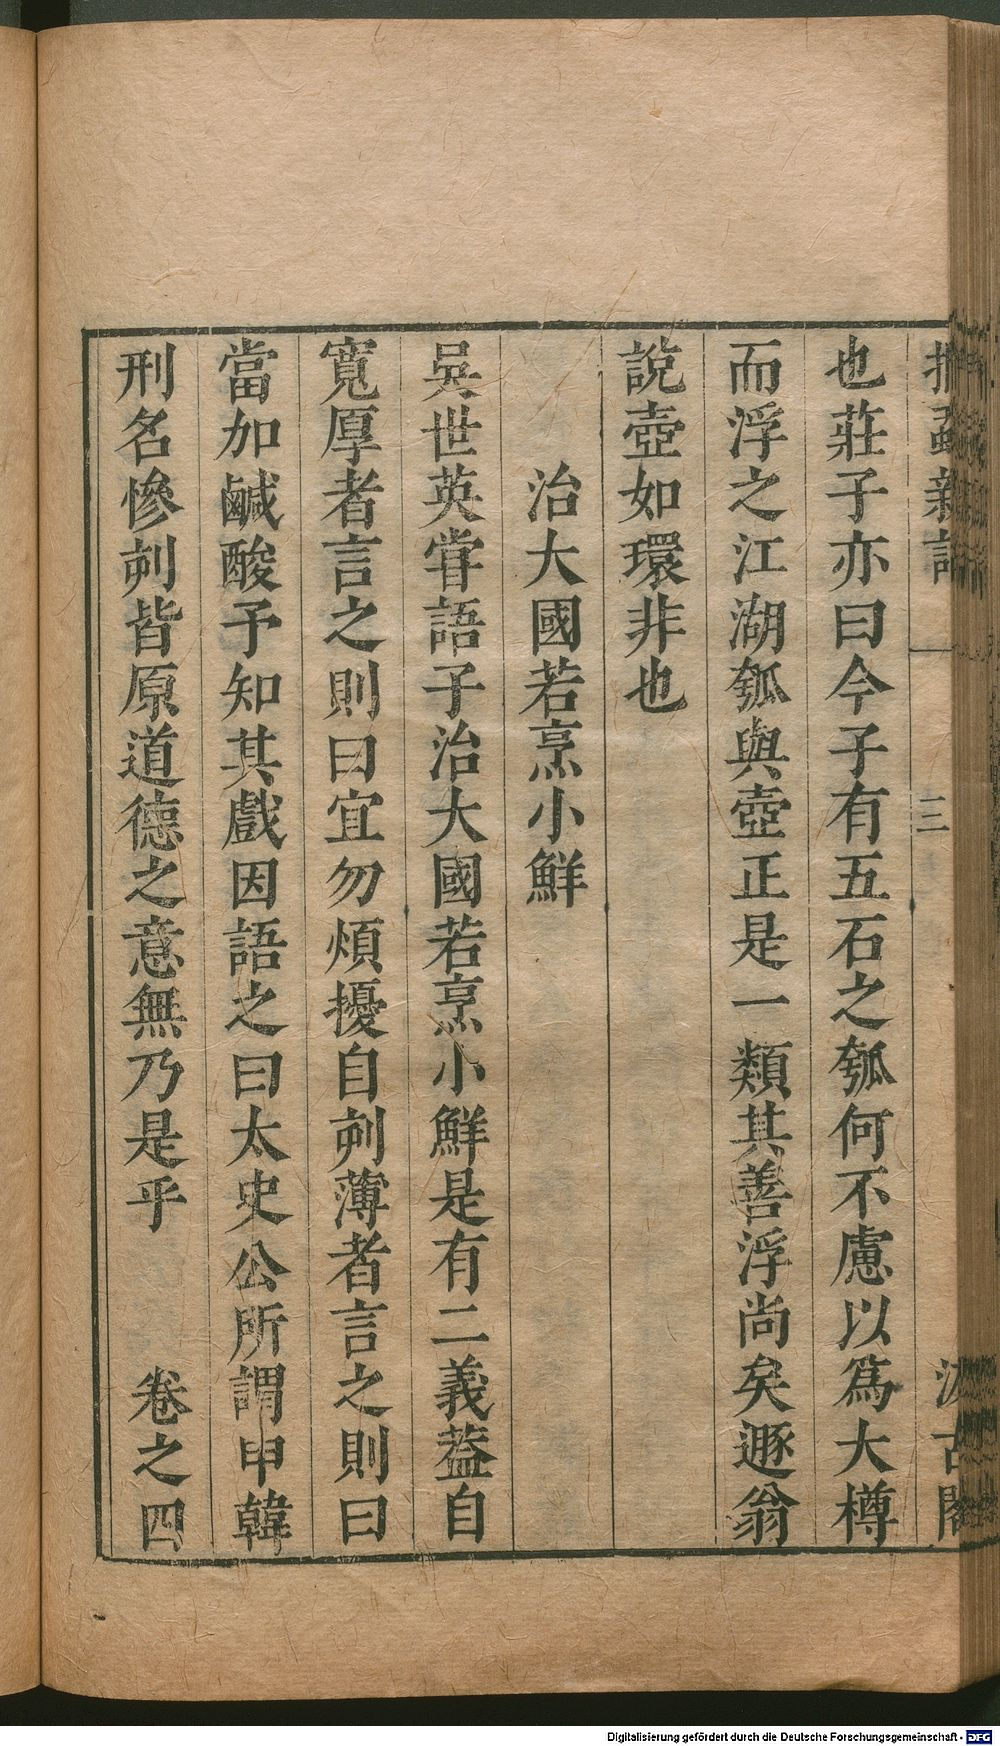 捫蝨新話 三 汲古閣
也莊子亦曰今子有五石之瓠何不慮以爲大樽
而浮之江湖瓠與壺正是一類其善浮尚矣遯翁
說壺如環非也
治大國若烹小鮮
吳世英甞語子治大國若烹小鮮是有二義葢自
寬厚者言之則曰宜勿煩擾自刻薄者言之則曰
當加鹹酸予知其戲因語之曰太史公所謂申韓
刑名慘刻皆原道德之意無乃是乎 卷之四
Digitalisierung gefördert durch die Deutsche Forschungsgemeinschaft - DFG